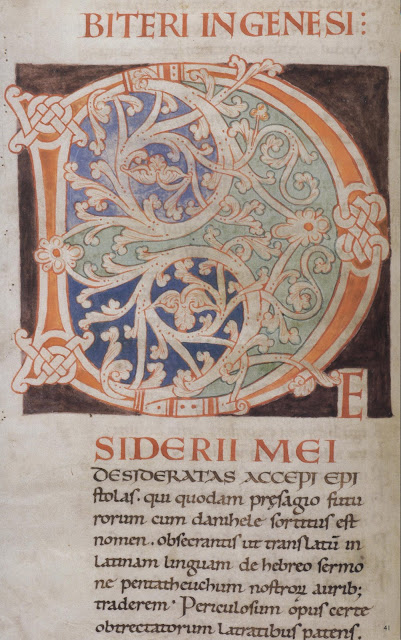 BITERI IN GENESI:
D
E
SIDERII MEI
DESIDERATAS ACCEPI EPI
stolas. qui quodam pręsagio futu
rorum cum danihele sortitus est
nomen. obsecrantis ut translatū in
latinam linguam de hebreo sermo
ne pentatheuchum nostrorꝝ aurib;
traderem. Periculosum opus certe
obtrectatorum latratibus patens.
41